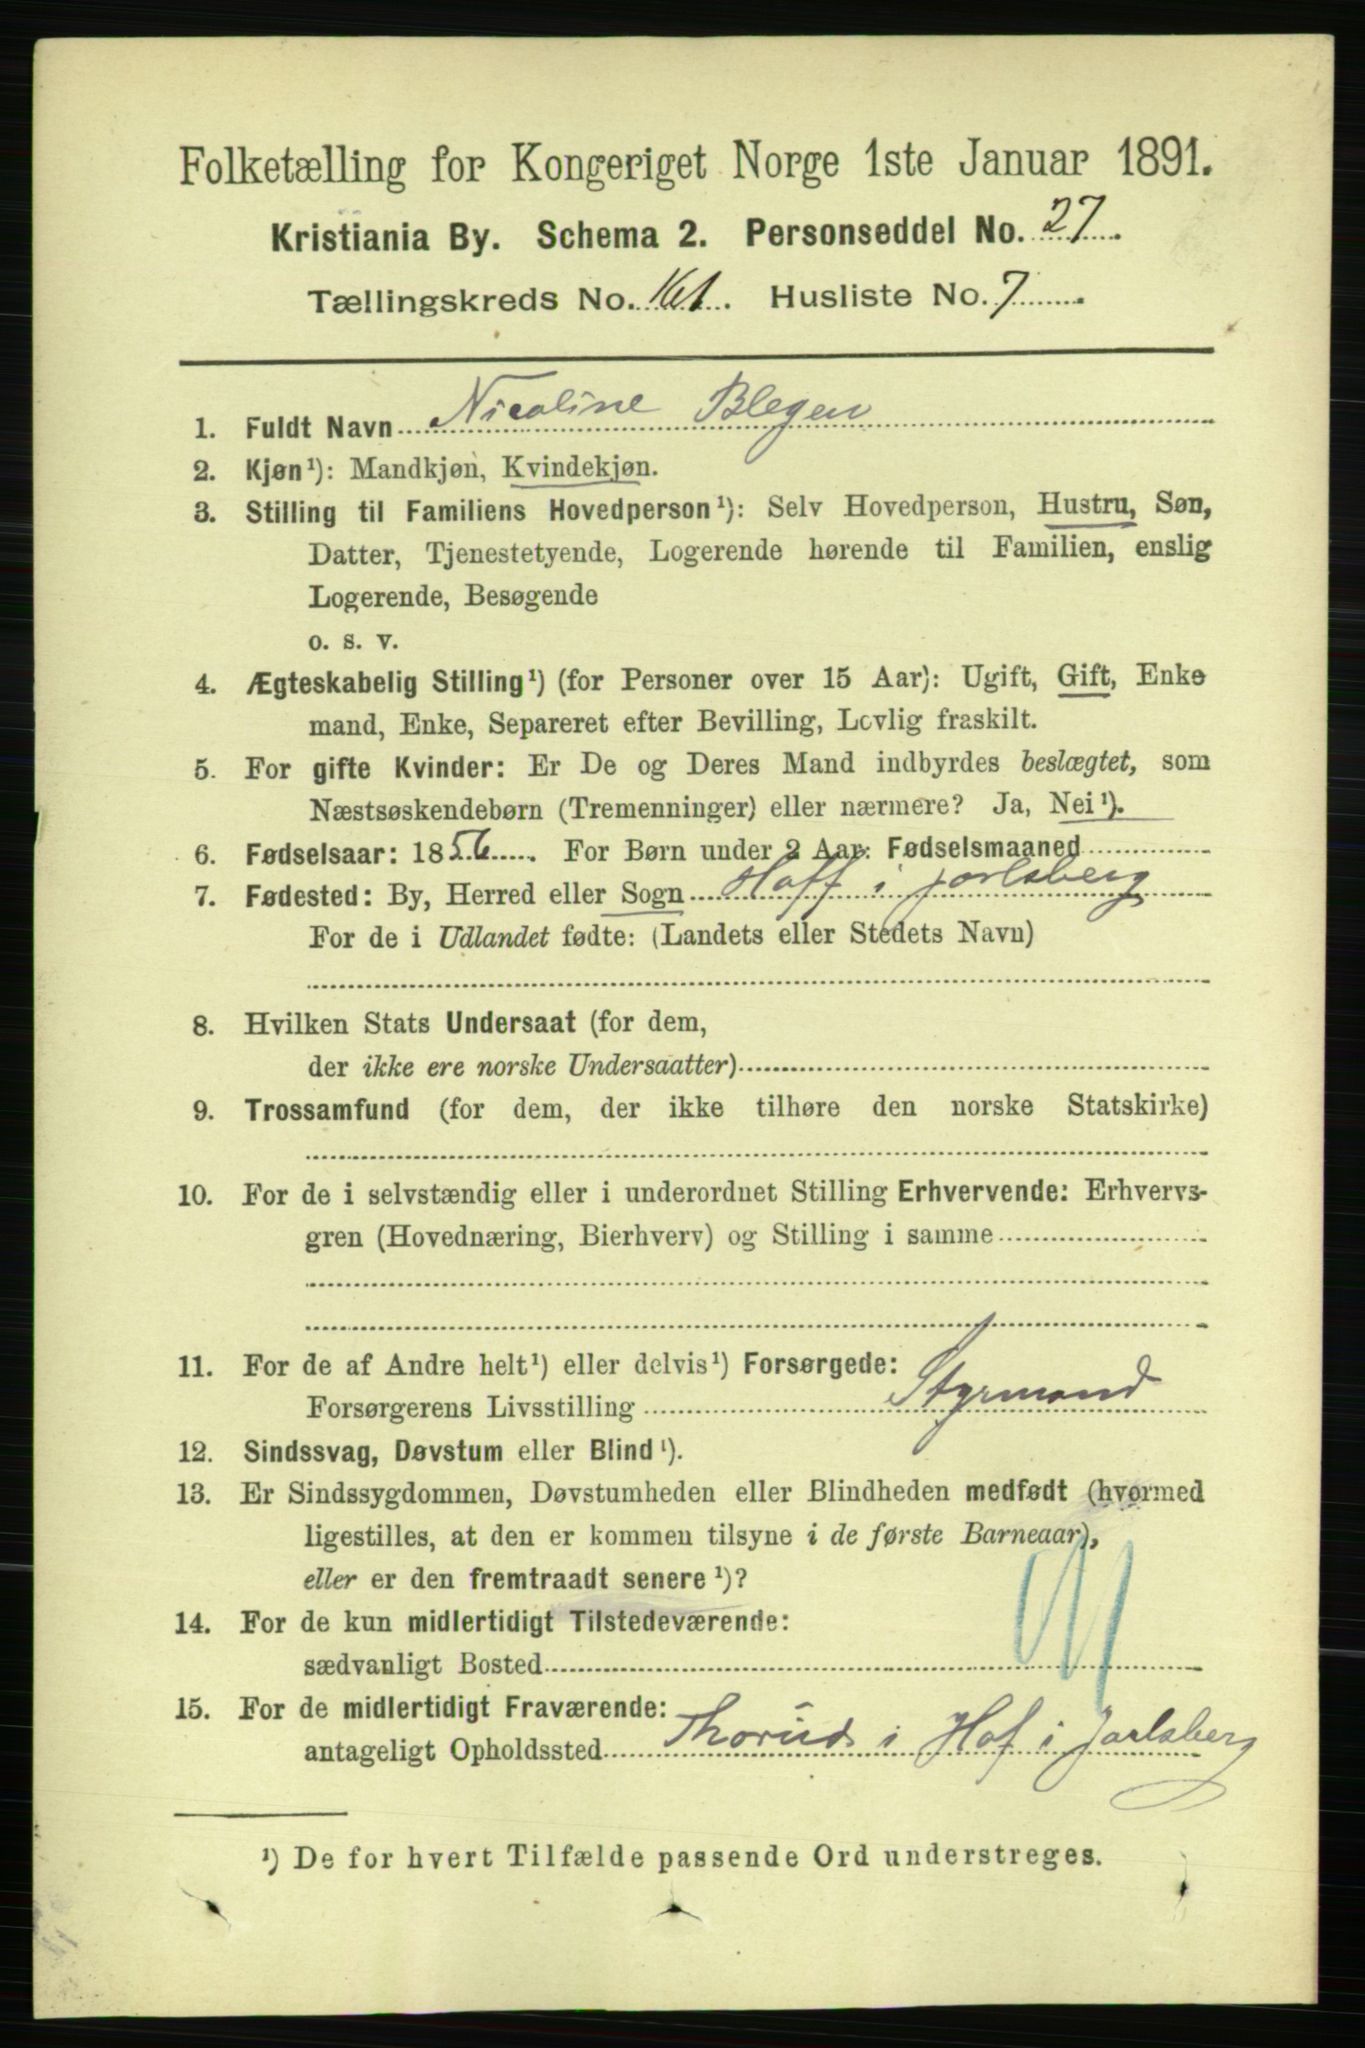 Folketælling for Kongeriget Norge 1ste Januar 1891.
Kristiania By. Schema 2. Personseddel No. 27.
Tællingskreds No. 161. Husliste No. 7.
1. Fuldt Navn Nicoline Blegen
2. Kjøn¹): Mandkjøn, Kvindekjøn.
3. Stilling til Familiens Hovedperson¹): Selv Hovedperson, Hustru, Søn,
Datter, Tjenestetyende, Logerende hørende til Familien, enslig
Logerende, Besøgende
o. s. v.
4. Ægteskabelig Stilling¹) (for Personer over 15 Aar): Ugift, Gift, Enke
mand, Enke, Separeret efter Bevilling, Lovlig fraskilt.
5. For gifte Kvinder: Er De og Deres Mand indbyrdes beslægtet, som
Næstsøskendebørn (Tremenninger) eller nærmere? Ja, Nei¹).
6. Fødselsaar: 1856. For Børn under 2 Aar: Fødselsmaaned
7. Fødested: By, Herred eller Sogn Hoff i Jarlsberg
For de i Udlandet fødte: (Landets eller Stedets Navn)
8. Hvilken Stats Undersaat (for dem,
der ikke ere norske Undersaatter)
9. Trossamfund (for dem, der ikke tilhøre den norske Statskirke)
10. For de i selvstændig eller i underordnet Stilling Erhvervende: Erhvervs-
gren (Hovednæring, Bierhverv) og Stilling i samme
11. For de af Andre helt¹) eller delvis¹) Forsørgede:
Forsørgerens Livsstilling Styrmand
12. Sindssvag, Døvstum eller Blind¹).
13. Er Sindssygdommen, Døvstumheden eller Blindheden medfødt (hvormed
ligestilles, at den er kommen tilsyne i de første Barneaar),
eller er den fremtraadt senere¹)?
14. For de kun midlertidigt Tilstedeværende:
sædvanligt Bosted
15. For de midlertidigt Fraværende:
antageligt Opholdssted Thorud i Hof i Jarlsberg
¹) De for hvert Tilfælde passende Ord understreges.